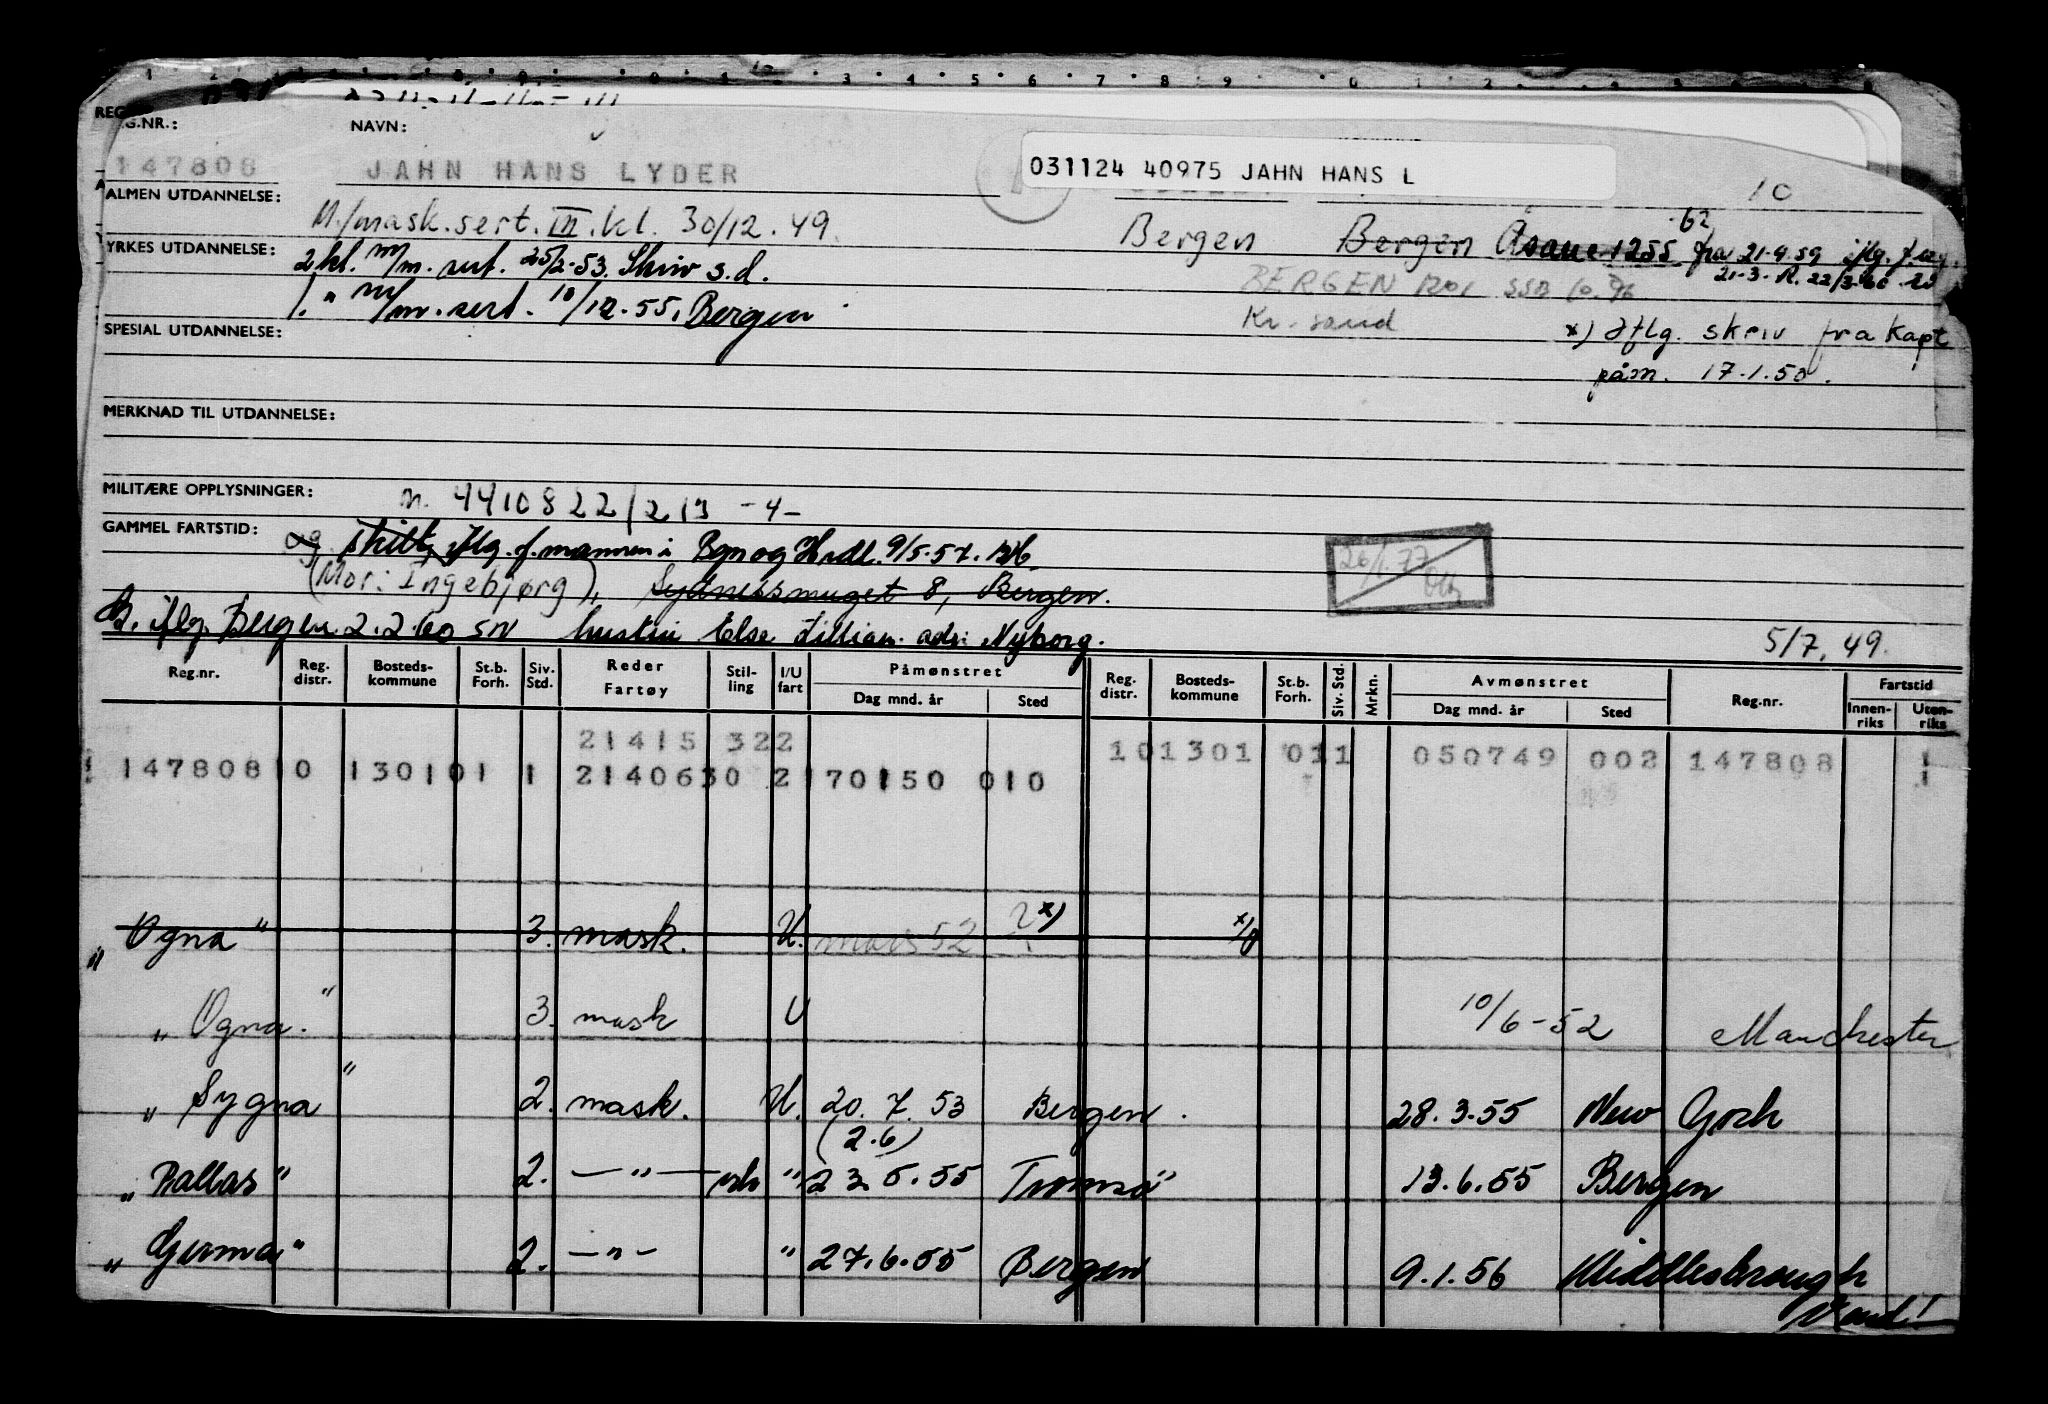 REG.NR.: NAVN:
031124 40975 JAHN HANS L
147808 JAHN HANS LYDER
10
ALMEN UTDANNELSE:
M./mask.sert. III. kl. 30/12.49.
Bergen Bergen Åsane 1255 fra 21.9.59 iflg.
62
YRKES UTDANNELSE: 2 kl. m/m. sert. 25/2-53. Skriv s.d.
BERGEN 1201 SSB
1. " m/m. sert. 10/12.55, Bergen
Kr. sand
SPESIAL UTDANNELSE:
x) Iflg. skriv fra Kapt
påm. 17.1.50.
MERKNAD TIL UTDANNELSE:
MILITÆRE OPPLYSNINGER: n. 4410822/213 -4-
GAMMEL FARTSTID: og skilt, iflg. f.mannen i Bgn og Hrdl. 9/5.57.
26/1.77
(Mor: Ingebjørg), Sydnessmuget 8, Bergen.
iflg. Bergen 2.2.60 SN hustru Else Lillian. adr: Nyborg.
5/7.49.
Reg.nr. Reg. distr. Bosteds-kommune St.b. Forh. Siv. Std. Reder Fartøy Stil-ling I/U fart Påmønstret Dag mnd. år Sted Reg. distr. Bosteds-kommune St.b. Forh. Siv. Std. Mrkn. Avmønstret Dag mnd. år Sted Reg.nr. Fartstid Innen-riks Uten-riks
21415 322 101301 011 050749 002 147808 1
147808 0 130101 1 2140630 2 170150 010 1
"Ogna" 3. mask. U. mars 52 ? x) x)
"Ogna." 3. mask U 10/6-52 Manchester
"Sygna" 2. mask. U. 20.7.53 Bergen. 28.3.55 New York
(2.6)
"Pallas" 2. —"— " 23.5.55 Tromsø 13.6.55 Bergen
"Germa" 2. —"— " 27.6.55 Bergen 9.1.56 Middlesbrough